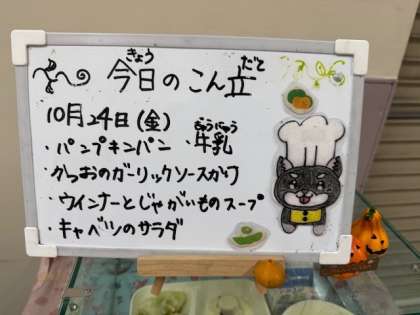 きょう だて
今日のこん立
10月24日(金)
・パンプキンパン ・牛乳
ぎゅうにゅう
・かつおのガーリックソースかけ
・ウインナーとじゃがいものスープ
・キャベツのサラダ